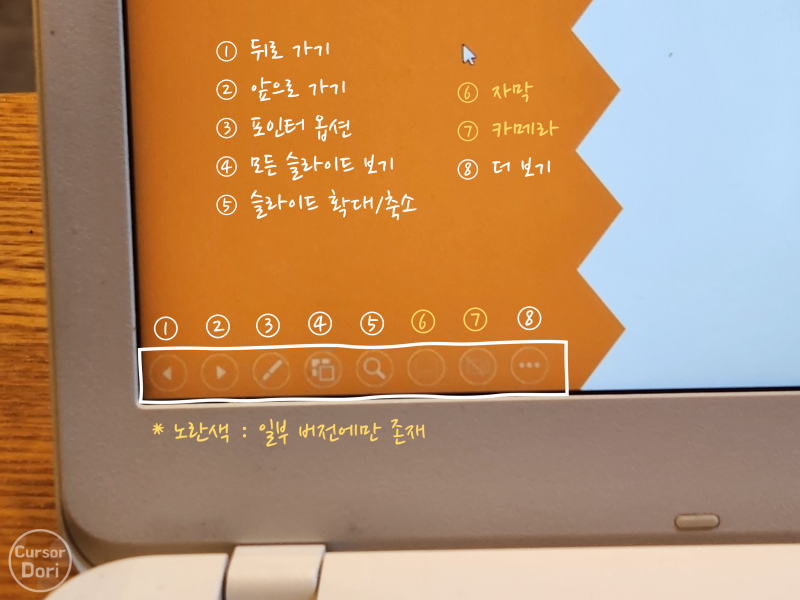 ① 뒤로 가기
② 앞으로 가기
③ 포인터 옵션
④ 모든 슬라이드 보기
⑤ 슬라이드 확대/축소
⑥ 자막
⑦ 카메라
⑧ 더 보기
① ② ③ ④ ⑤ ⑥ ⑦ ⑧
* 노란색 : 일부 버전에만 존재
Cursor
Dori